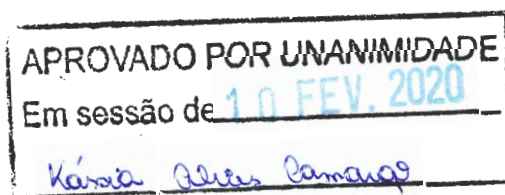 APROVADO POR UNANIMIDADE
Em sessão de 10 FEV. 2020
Kássia Camargo